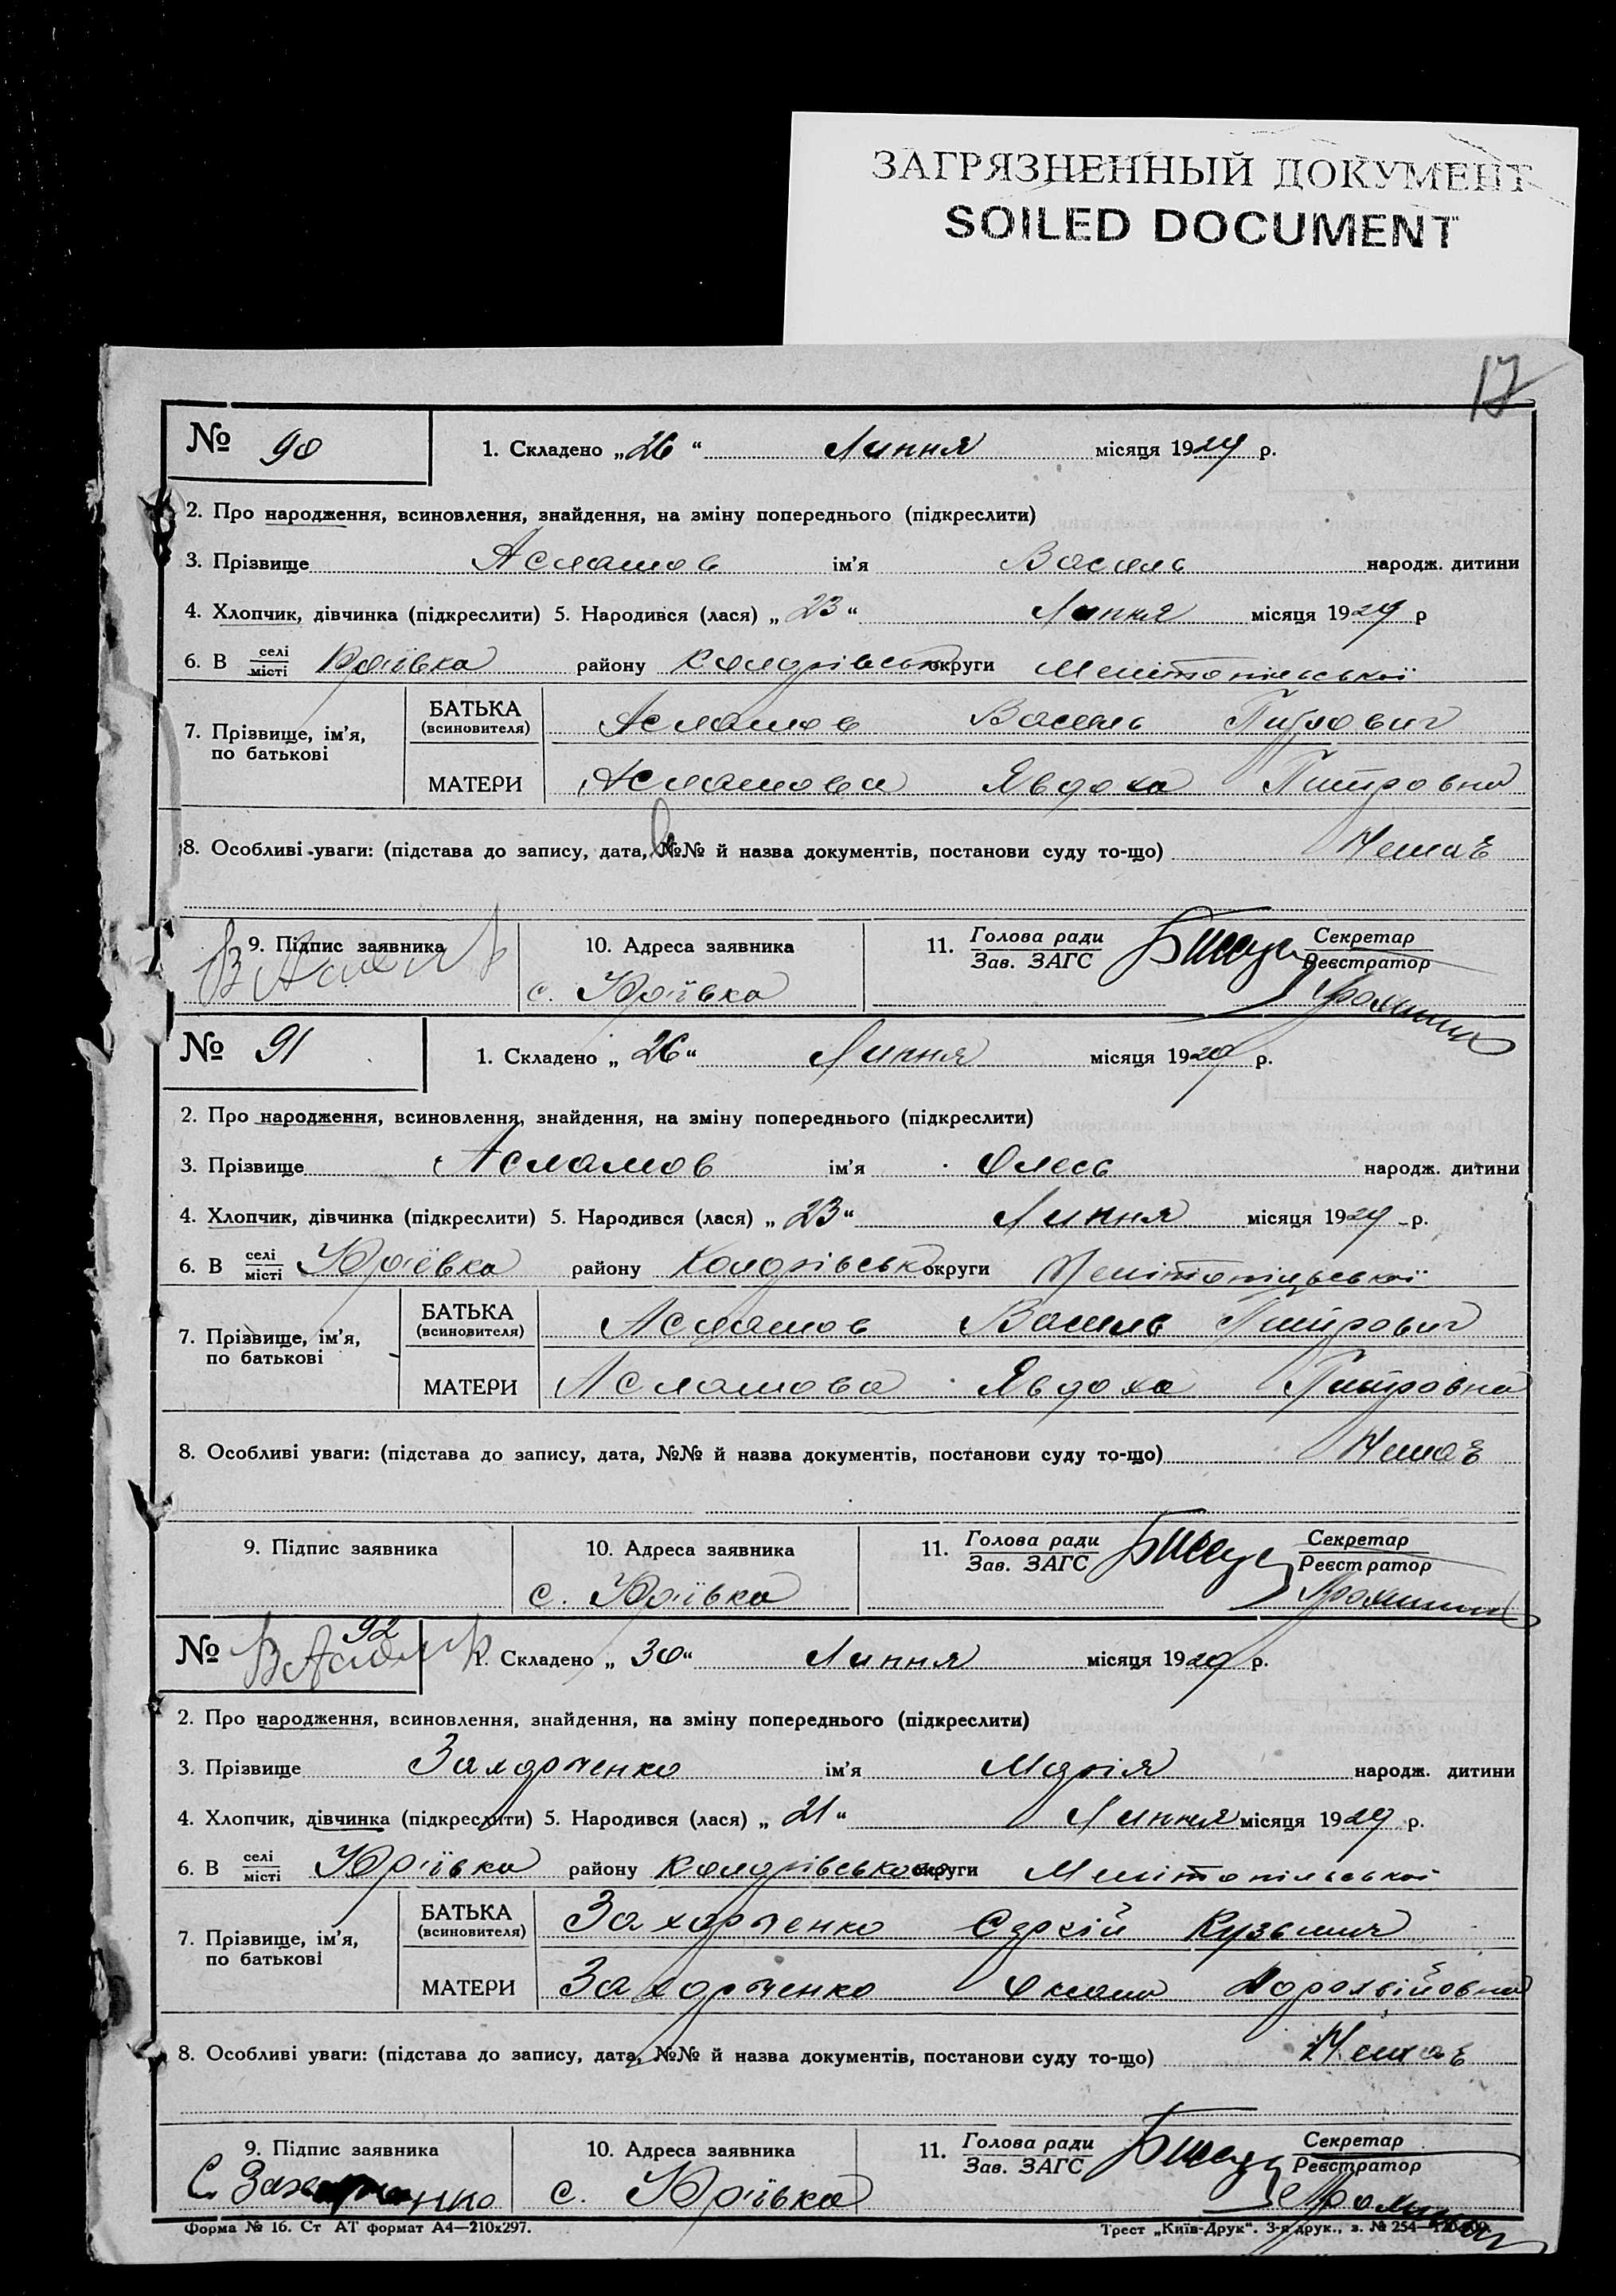 ЗАГРЯЗНЕННЫЙ ДОКУМЕНТ
SOILED DOCUMENT
17
№ 90 1. Складено „26“ Липня місяця 1929 р.
2. Про народження, всиновлення, знайдення, на зміну попереднього (підкреслити)
3. Прізвище Асламов ім'я Василь народж. дитини
4. Хлопчик, дівчинка (підкреслити) 5. Народився (лася) „23“ Липня місяця 1929 р
6. В селі/місті Юріївка району округи Мелітопільської
7. Прізвище, ім'я, по батькові
БАТЬКА (всиновителя) Асламов Василь Питрович
МАТЕРИ Асламова Явдоха Питровна
8. Особливі уваги: (підстава до запису, дата, №№ й назва документів, постанови суду то-що) Немає
9. Підпис заявника 10. Адреса заявника 11. Голова ради/Зав. ЗАГС Секретар/Реєстратор
с. Юріївка
№ 91 1. Складено „26“ Липня місяця 1929 р.
2. Про народження, всиновлення, знайдення, на зміну попереднього (підкреслити)
3. Прізвище Асламов ім'я Олесь народж. дитини
4. Хлопчик, дівчинка (підкреслити) 5. Народився (лася) „23“ Липня місяця 1929 р.
6. В селі/місті Юріївка району округи Мелітопільської
7. Прізвище, ім'я, по батькові
БАТЬКА (всиновителя) Асламов Василь Питрович
МАТЕРИ Асламова Явдоха Питровна
8. Особливі уваги: (підстава до запису, дата, №№ й назва документів, постанови суду то-що) Немає
9. Підпис заявника 10. Адреса заявника 11. Голова ради/Зав. ЗАГС Секретар/Реєстратор
с. Юріївка
№ 92 1. Складено „30“ Липня місяця 1929 р.
2. Про народження, всиновлення, знайдення, на зміну попереднього (підкреслити)
3. Прізвище Захарченко ім'я Марія народж. дитини
4. Хлопчик, дівчинка (підкреслити) 5. Народився (лася) „21“ Липня місяця 1929 р.
6. В селі/місті Юріївка району округи Мелітопільської
7. Прізвище, ім'я, по батькові
БАТЬКА (всиновителя) Захарченко Сергій Кузьмич
МАТЕРИ Захарченко Оксана
8. Особливі уваги: (підстава до запису, дата, №№ й назва документів, постанови суду то-що) Немає
9. Підпис заявника 10. Адреса заявника 11. Голова ради/Зав. ЗАГС Секретар/Реєстратор
С. Захарченко с. Юріївка
Форма № 16. Ст АТ формат А4—210х297. Трест „Київ-Друк“. 3-я друк., з. № 254—